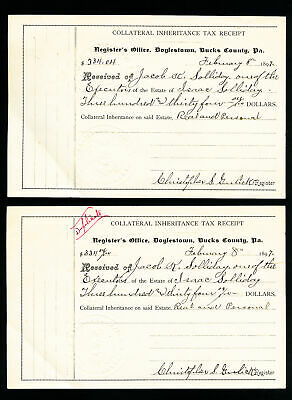 COLLATERAL INHERITANCE TAX RECEIPT
Register's Office, Doylestown, Bucks County, Pa.
$ 334.04 February 8th 1897.
Received of Jacob K. Solliday one of the
Executors of the Estate of Isaac Solliday
Three hundred & thirty four DOLLARS,
Collateral Inheritance on said Estate, Real and Personal
Christopher S. Register
COLLATERAL INHERITANCE TAX RECEIPT
Duplicate
Register's Office, Doylestown, Bucks County, Pa.
February 8th 1897.
Received of Jacob K. Solliday one of the
Executors of the Estate of Isaac Solliday
Three hundred & thirty four DOLLARS,
Collateral Inheritance on said Estate, Real and Personal
Christopher S. Register